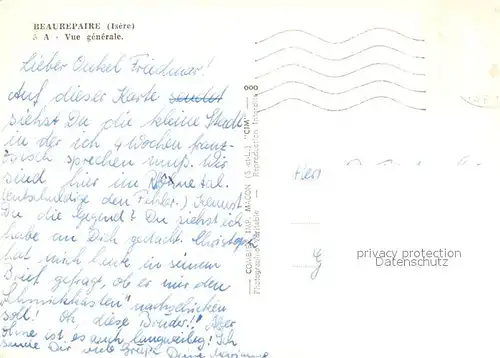 BEAUREPAIRE (Isère)
5 A - Vue générale.
Lieber Onkel Friedmar!
Auf dieser Karte sendet
siehst Du die kleine Stadt
in der ich 4 Wochen franz-
zösisch sprechen muß. Wir
sind hier im Rhônetal.
(entschuldige den Fehler.) Kennst
Du die Gegend? Du siehst ich
habe an Dich gedacht. Christoph
hat mich heute in seinem
Brief gefragt, ob er mir den
nachschicken
soll! Oh, diese Brüder!! Aber
ohne ist es auch langweilig! Ich
sende Dir viele Grüße Deine Marianne
COMBIER IMP. MACON (S.-et-L.) "CIM"
Photographie Véritable — Reproduction Interdite
Herr
privacy protection
www.ansichtskartenversand.com